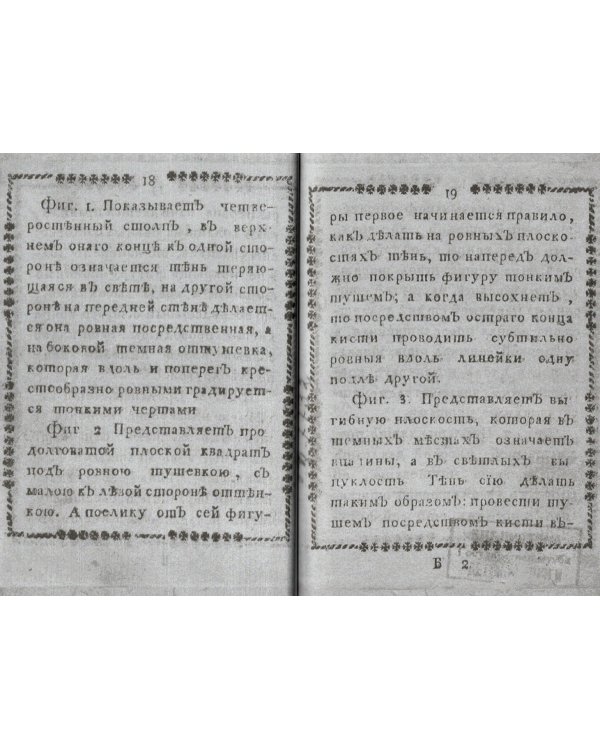 18
Фиг. 1. Показываетъ четве-
ростѣнный столпъ, въ верх-
немъ онаго концѣ къ одной сто-
ронѣ означается тѣнь теряю-
щаяся въ свѣтѣ, на другой сто-
ронѣ на передней стѣнѣ дѣлает-
ся она ровная посредственная, а
на боковой темная оттушевка,
которая вдоль и поперегъ кре-
стообразно ровными градирует-
ся тонкими чертами
Фиг 2 Представляетъ про
долговатой плоской квадратъ
подъ ровною тушевкою, съ
малою къ лѣвой сторонѣ оттѣн-
кою. А поелику отъ сей фигу-
19
ры первое начинается правило,
какъ дѣлать на ровныхъ плоско-
стяхъ тѣнь, то напередъ дол-
жно покрыть фигуру тонкимъ
тушемъ; а когда высохнетъ,
то посредствомъ остраго конца
кисти проводить субтильно
ровныя вдоль линейки одну
подлѣ другой.
Фиг. 3. Представляетъ вы
гибную плоскость, которая въ
темныхъ мѣстахъ означаетъ
впадины, а въ свѣтлыхъ вы
пуклость Тѣнь сію дѣлать
такимъ образомъ: провести ту-
шемъ посредствомъ кисти въ-
Б 2